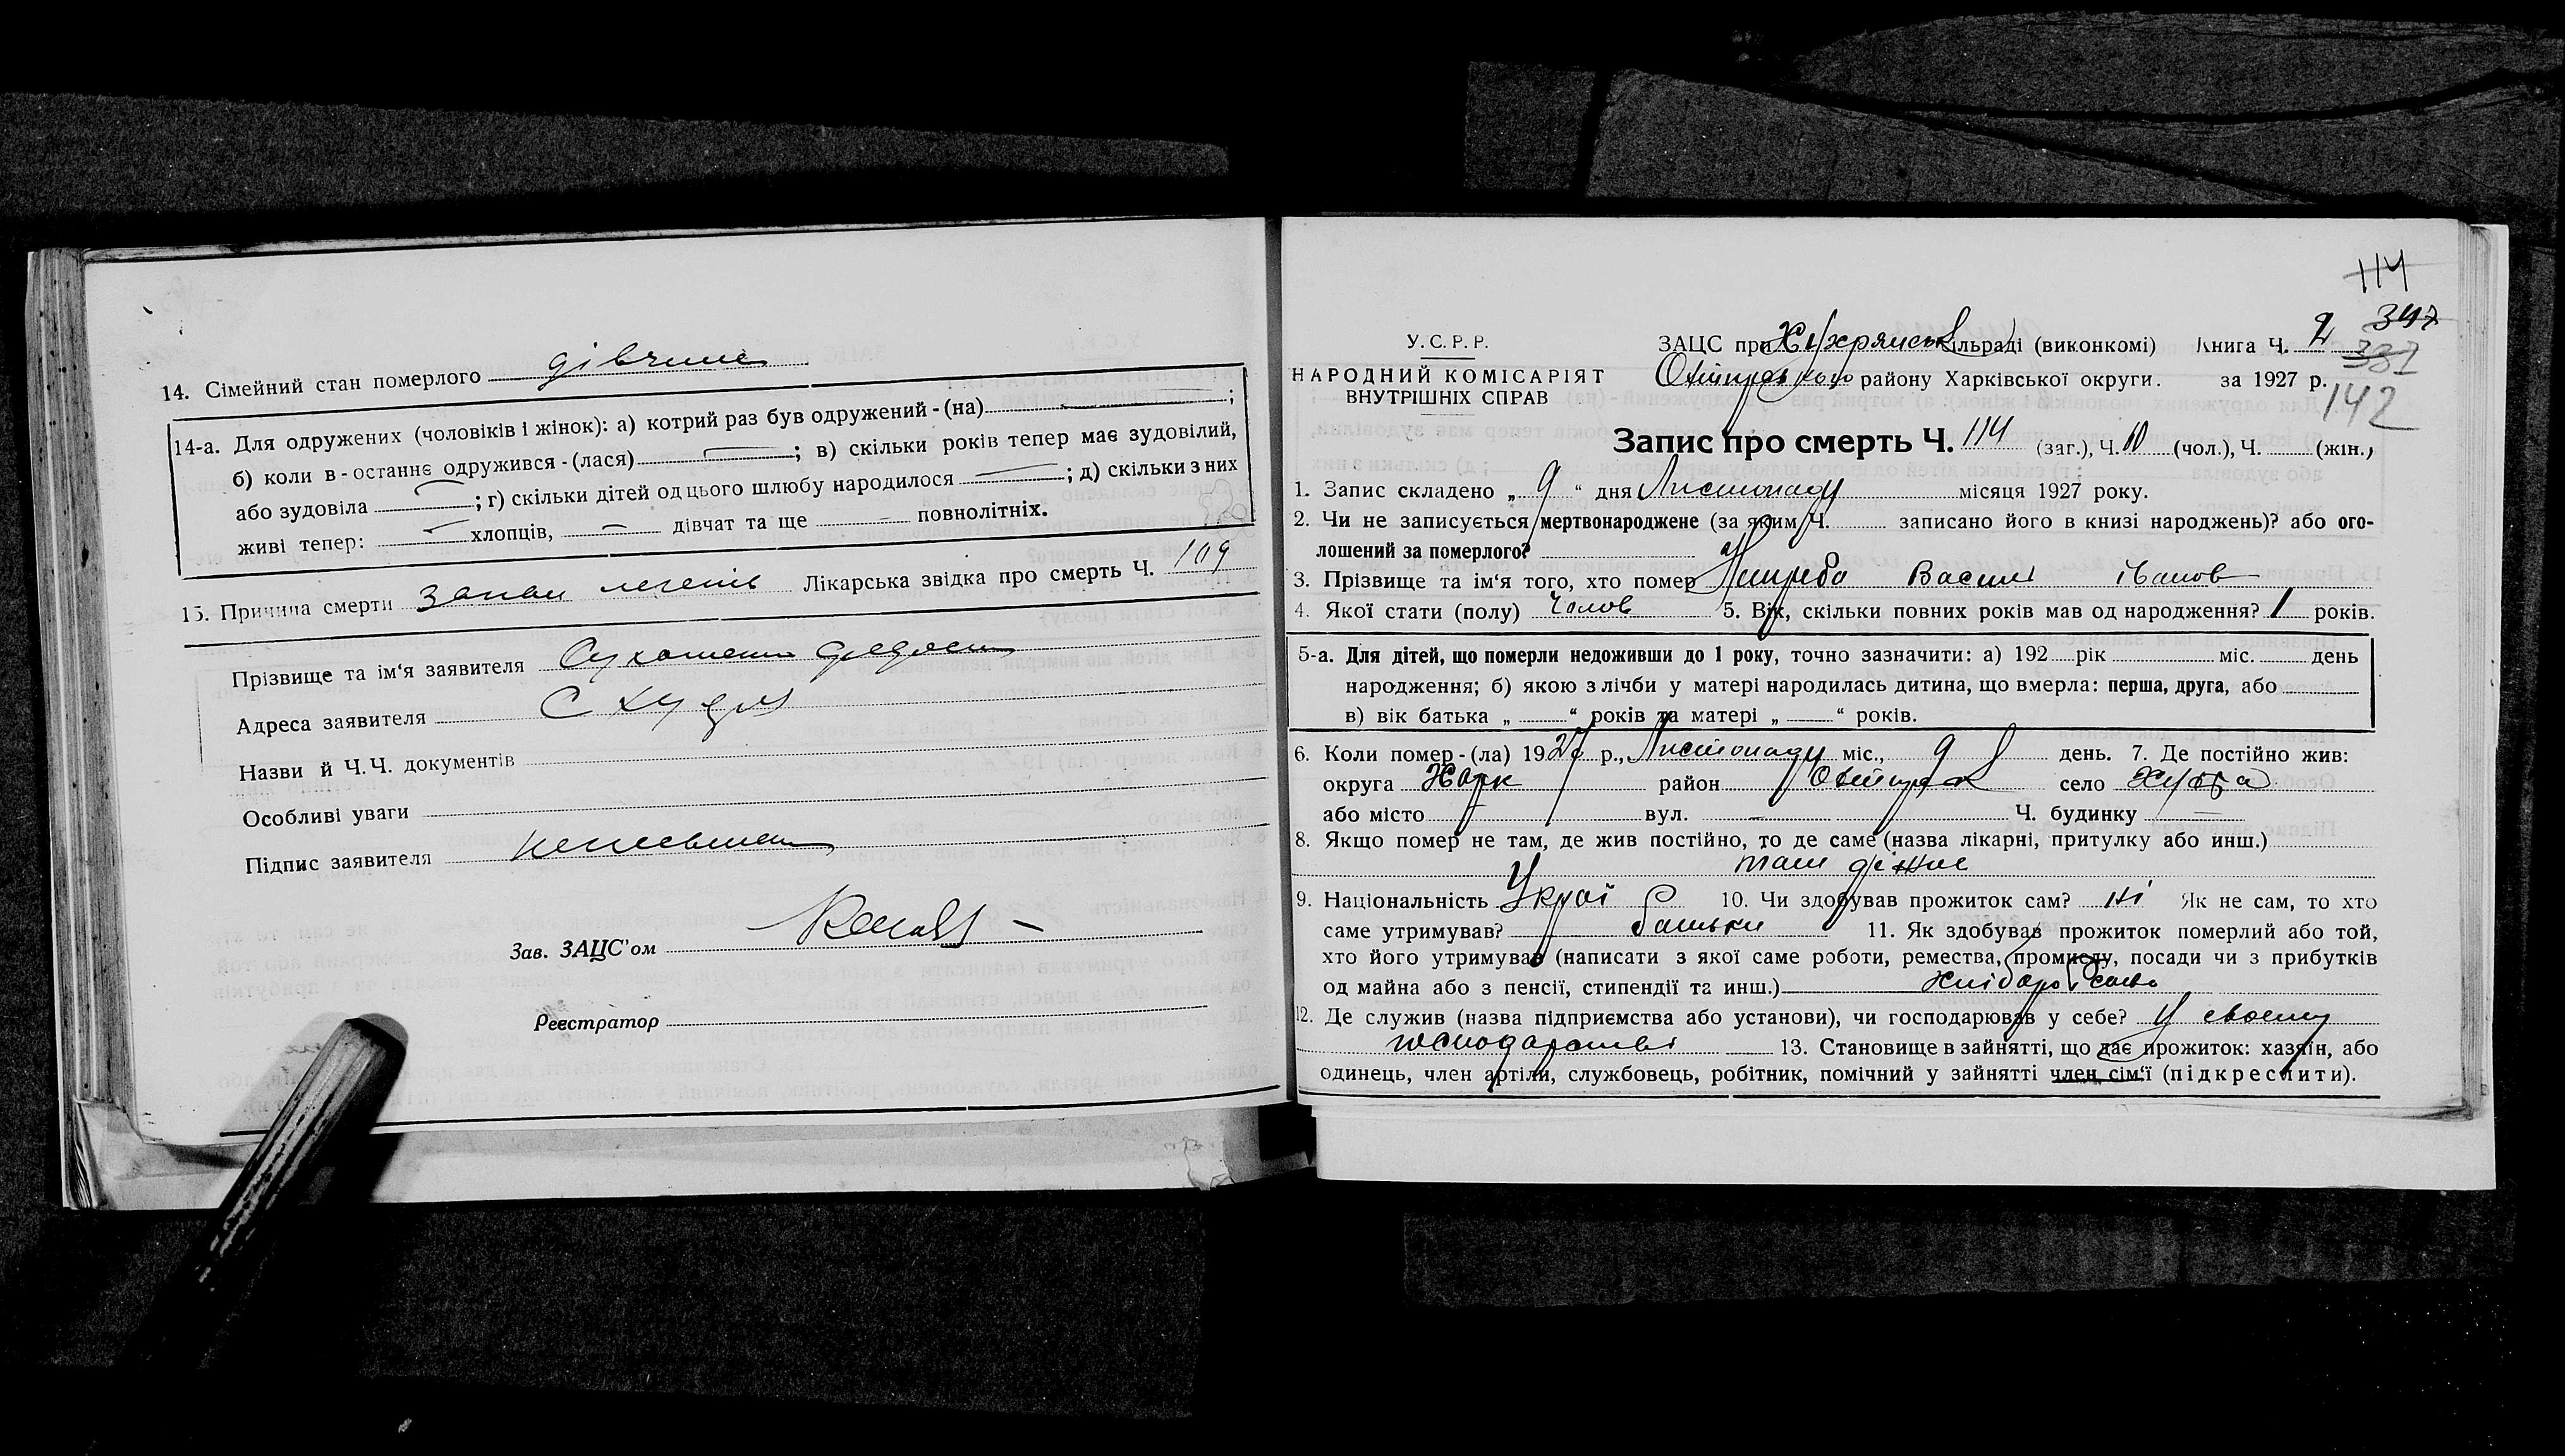 14. Сімейний стан померлого дівчина
14-а. Для одружених (чоловіків і жінок): а) котрий раз був одружений - (на) ;
б) коли в - останнє одружився - (лася) ; в) скільки років тепер має зудовілий,
або зудовіла ; г) скільки дітей од цього шлюбу народилося ; д) скільки з них
живі тепер: хлопців, дівчат та ще повнолітніх.
15. Причина смерти запал легенів Лікарська звідка про смерть Ч. 109
Прізвище та ім'я заявителя
Адреса заявителя С
Назви й Ч. Ч. документів
Особливі уваги
Підпис заявителя
Зав. ЗАЦС'ом
Реєстратор
114
У. С. Р. Р. ЗАЦС при Хухрянськ ільраді (виконкомі) Книга Ч. 2 347
НАРОДНИЙ КОМІСАРІЯТ району Харківської округи. за 1927 р. 387
ВНУТРІШНІХ СПРАВ 142
Запис про смерть Ч. 114 (заг.), Ч. 10 (чол.), Ч. (жін.)
1. Запис складено „ 9 “ дня Листопаду місяця 1927 року.
2. Чи не записується мертвонароджене (за яким Ч. записано його в книзі народжень)? або ого-
лошений за померлого?
3. Прізвище та ім'я того, хто помер Василі Іванов
4. Якої стати (полу) Чолов 5. Вік, скільки повних років мав од народження? 1 років.
5-а. Для дітей, що померли недоживши до 1 року, точно зазначити: а) 192 рік міс. день
народження; б) якою з лічби у матері народилась дитина, що вмерла: перша, друга, або
в) вік батька „ “ років та матері „ “ років.
6. Коли помер - (ла) 1927 р., Листопаду міс., 9 день. 7. Де постійно жив:
округа Харк район Охтирск село Хухра
або місто вул. Ч. будинку
8. Якщо помер не там, де жив постійно, то де саме (назва лікарні, притулку або инш.)
там де жив
9. Національність Украї 10. Чи здобував прожиток сам? ні Як не сам, то хто
саме утримував? батьки 11. Як здобував прожиток померлий або той,
хто його утримував (написати з якої саме роботи, ремества, промислу, посади чи з прибутків
од майна або з пенсії, стипендії та инш.) хлібороbство
12. Де служив (назва підприємства або установи), чи господарював у себе? У своєму
господарстві 13. Становище в зайнятті, що дає прожиток: хазяїн, або
одинець, член артіли, службовець, робітник, помічний у зайнятті член сім'ї (підкреслити).